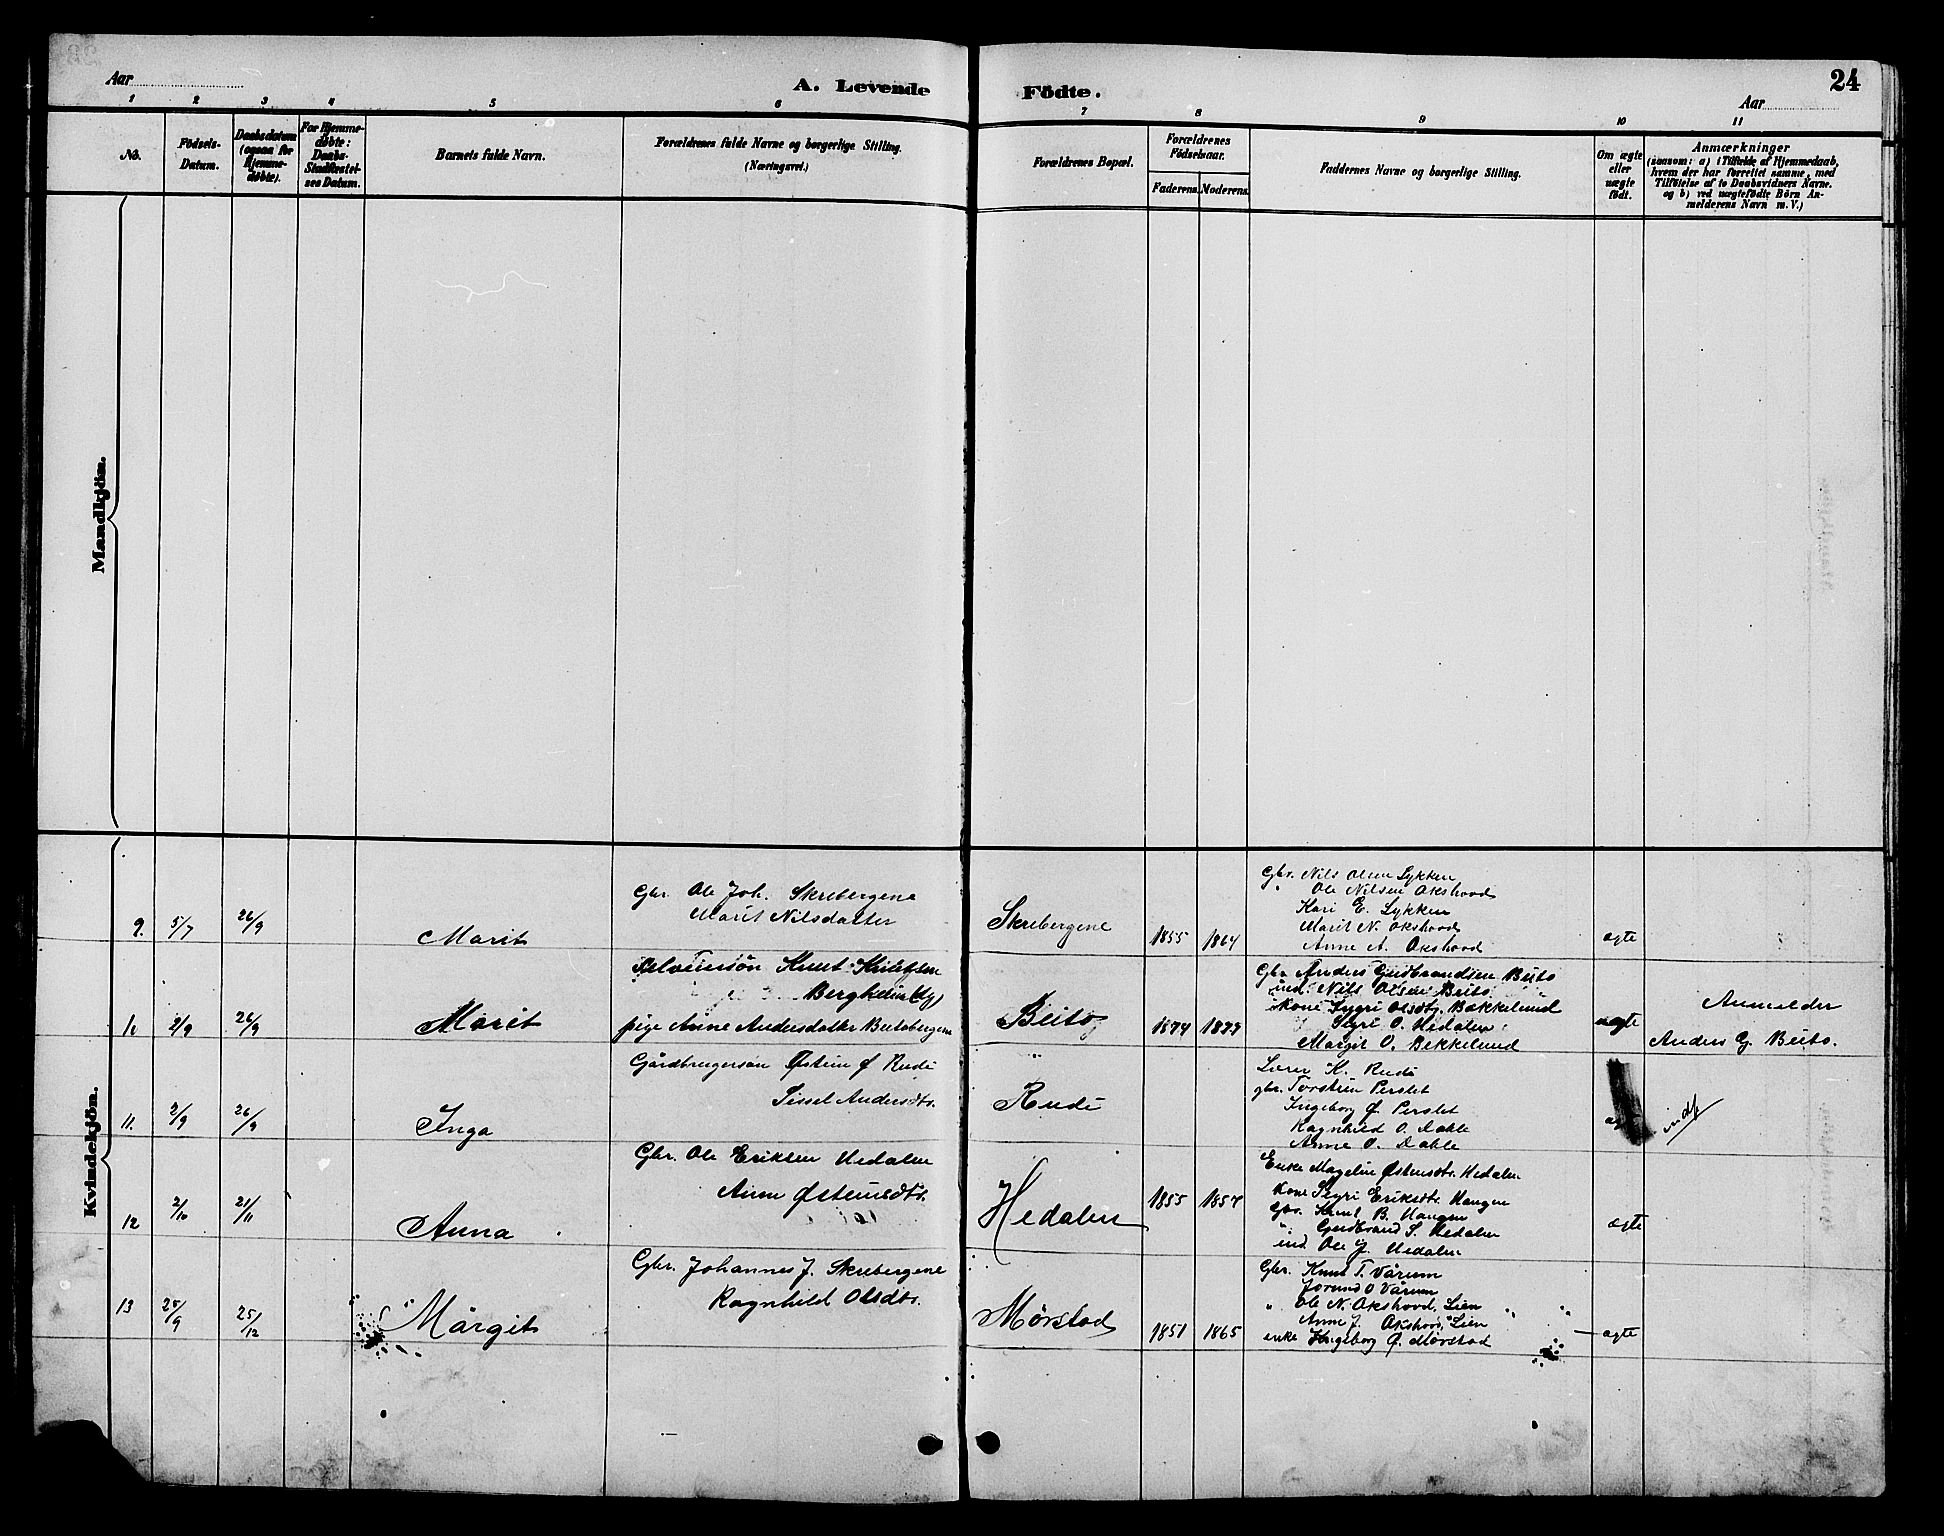 24
Aar
A. Levende Födte.
Aar
1 2 3 4 5 6 7 8 9 10 11
No.
Födsels-
Datum.
Daabsdatum
(ogsaa for
Hjemme-
døbte).
For Hjemme-
døbte:
Daabs-
Stadfæstel-
ses Datum.
Barnets fulde Navn.
Forældrenes fulde Navne og borgerlige Stilling.
(Næringsvei.)
Forældrenes Bopæl.
Forældrenes
Födselsaar.
Faderens. Moderens.
Faddernes Navne og borgerlige Stilling.
Om ægte
eller
uægte
født.
Anmærkninger
(saasom: a) i Tilfælde af Hjemmedaab,
hvem der har forrettet samme, med
Tilføielse af to Daabsvidners Navne.
og b) ved uægtefödte Börn An-
melderens Navn m. V.)
Mandkjön.
Kvindekjön.
9. 5/7 26/9
Marit
Gbr. Ole Joh. Skrebergene
Marit Nilsdatter
Skrebergene
1855 1864
Gbr. Nils Olsen Lykken
" Ole Nilsen Okshovd
Kari E. Lykken
Marit N. Okshovd
Anne A. Okshovd
ægte
2/9 26/9
Marit
Knut Knutsen
pige Anne Andersdatter Beitobergene
Beito
1874 1877
Gbr. Anders Gudbrandsen Beito
ind. Nils Olsen Beito
kone Sygri Olsdtr. Bækkelund
Sigri O. Hedalen
Margit O. Bekkelund
uægte
Anmelder
Anders G. Beito.
11. 2/9 26/9
Inga
Gårdbrugersøn Østen Ø Rudi
Sissel Andersdtr.
Rudi
Lærer K. Rudi
gbr. Torstein Perslet
Ingeborg Ø. Perslet
Ragnhild O. Dahle
Anne O. Dahle
12 2/10 21/11
Anna
Gbr. Ole Eriksen Hedalen
Anne Østensdtr.
Hedalen
1855 1857
Enke Magelin Østensdtr. Hedalen
Kone Sigri Eriksdtr. Haugen
Gbr. Knut B. Haugen
" Gudbrand S. Hedalen
ind. Ole G. Hedalen
ægte
13 25/9 25/12
Margit
Gbr. Johannes J. Skrebergene
Ragnhild Olsdtr.
Mørstad
1851 1865
Gbr. Knut T. Vårum
Jorund O Vårum
" Ole N. Okshovd, Lien
Anne J. Okshovd, Lien
enke Ingeborg Ø. Mørstad
ægte